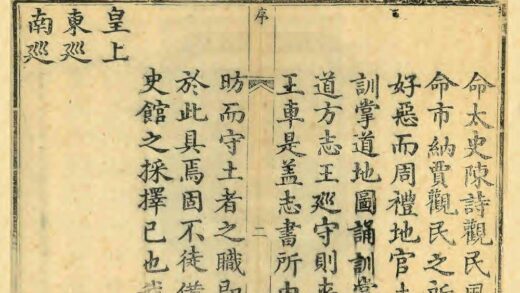 命太史陳詩觀民風
命市納賈觀民之所
好惡而周禮地官土
訓掌道地圖誦訓掌
道方志王廵守則夾
王車是盖志書所由
序
二
昉而守土者之職即
於此具焉固不徒備
史館之採擇已也
皇上
東廵
南廵